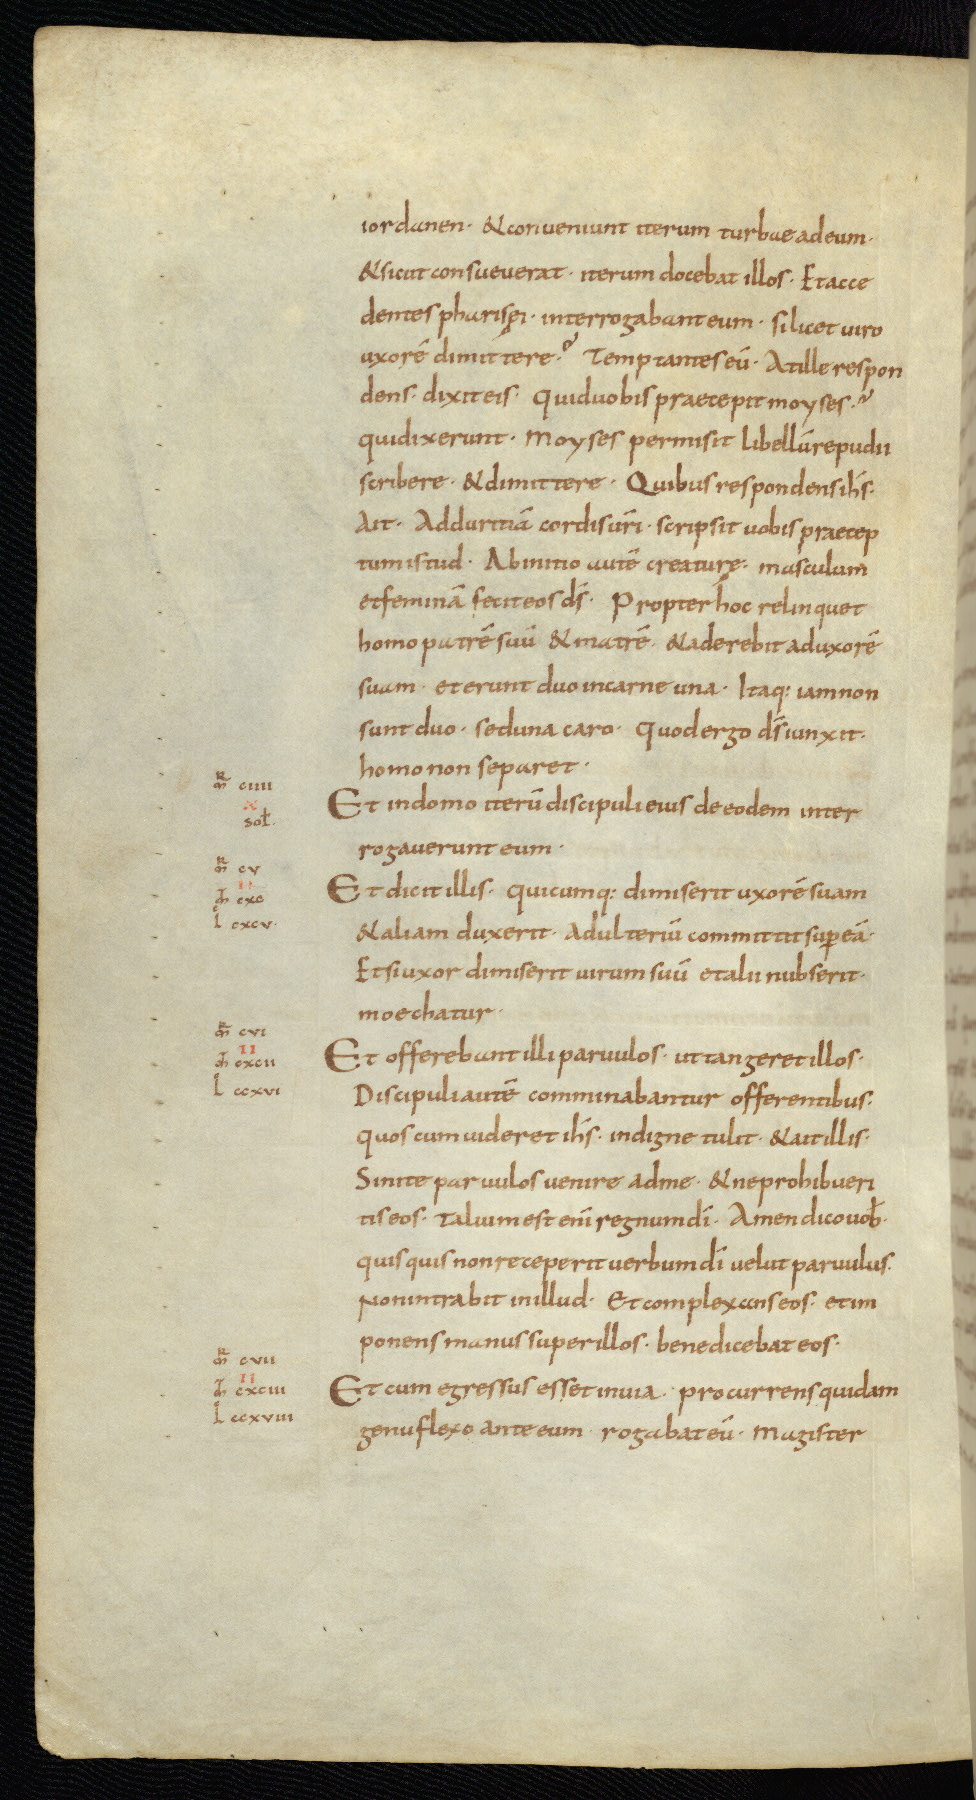 iordanen · & conueniunt iterum turbae ad eum ·
& sicut consueuerat · iterum docebat illos · Et acce
dentes pharisęi · interrogabant eum · si licet uiro
uxorē dimittere · Temptantes eū · At ille respon
dens · dixit eis · Quid uobis praecepit moyses ·
qui dixerunt · Moyses permisit libellū repudii
scribere · & dimittere · Quibus respondens ihs̄ ·
Ait · Ad duritiā cordis ur̄i · scripsit uobis praecep
tum istud · Ab initio autē creaturę · masculum
et feminā fecit eos ds̄ · Propter hoc relinquet
homo patrē suū & matrē · & aderebit ad uxorē
suam · et erunt duo in carne una · Itaq: iam non
sunt duo · sed una caro · Quod ergo ds̄ iunxit ·
homo non separet ·
m̄r ciiii
x
sol ·
Et in domo iterū discipuli eius de eodem inter
rogauerunt eum ·
m̄r cv
ii
m̄t cxc
l cxcv ·
Et dicit illis · Quicumq: dimiserit uxorē suam
& aliam duxerit · Adulteriū committit sup eā ·
Et si uxor dimiserit uirum suū et alii nubserit ·
moechatur ·
m̄r cvi
ii
m̄t cxcii
l ccxvi
Et offerebant illi paruulos · ut tangeret illos ·
Discipuli autē comminabantur offerentibus ·
quos cum uideret ihs̄ · indigne tulit · & ait illis ·
Sinite paruulos uenire ad me · & ne prohibueri
tis eos · Talium est eni regnum dī · Amen dico uob̄ ·
quisquis non receperit uerbum dī uelut paruulus ·
Non intrabit in illud · Et complexans eos · et im
ponens manus super illos · benedicebat eos ·
m̄r cvii
ii
m̄t cxciii
l ccxviii
Et cum egressus esset in uia · procurrens quidam
genu flexo ante eum · rogabat eū · Magister